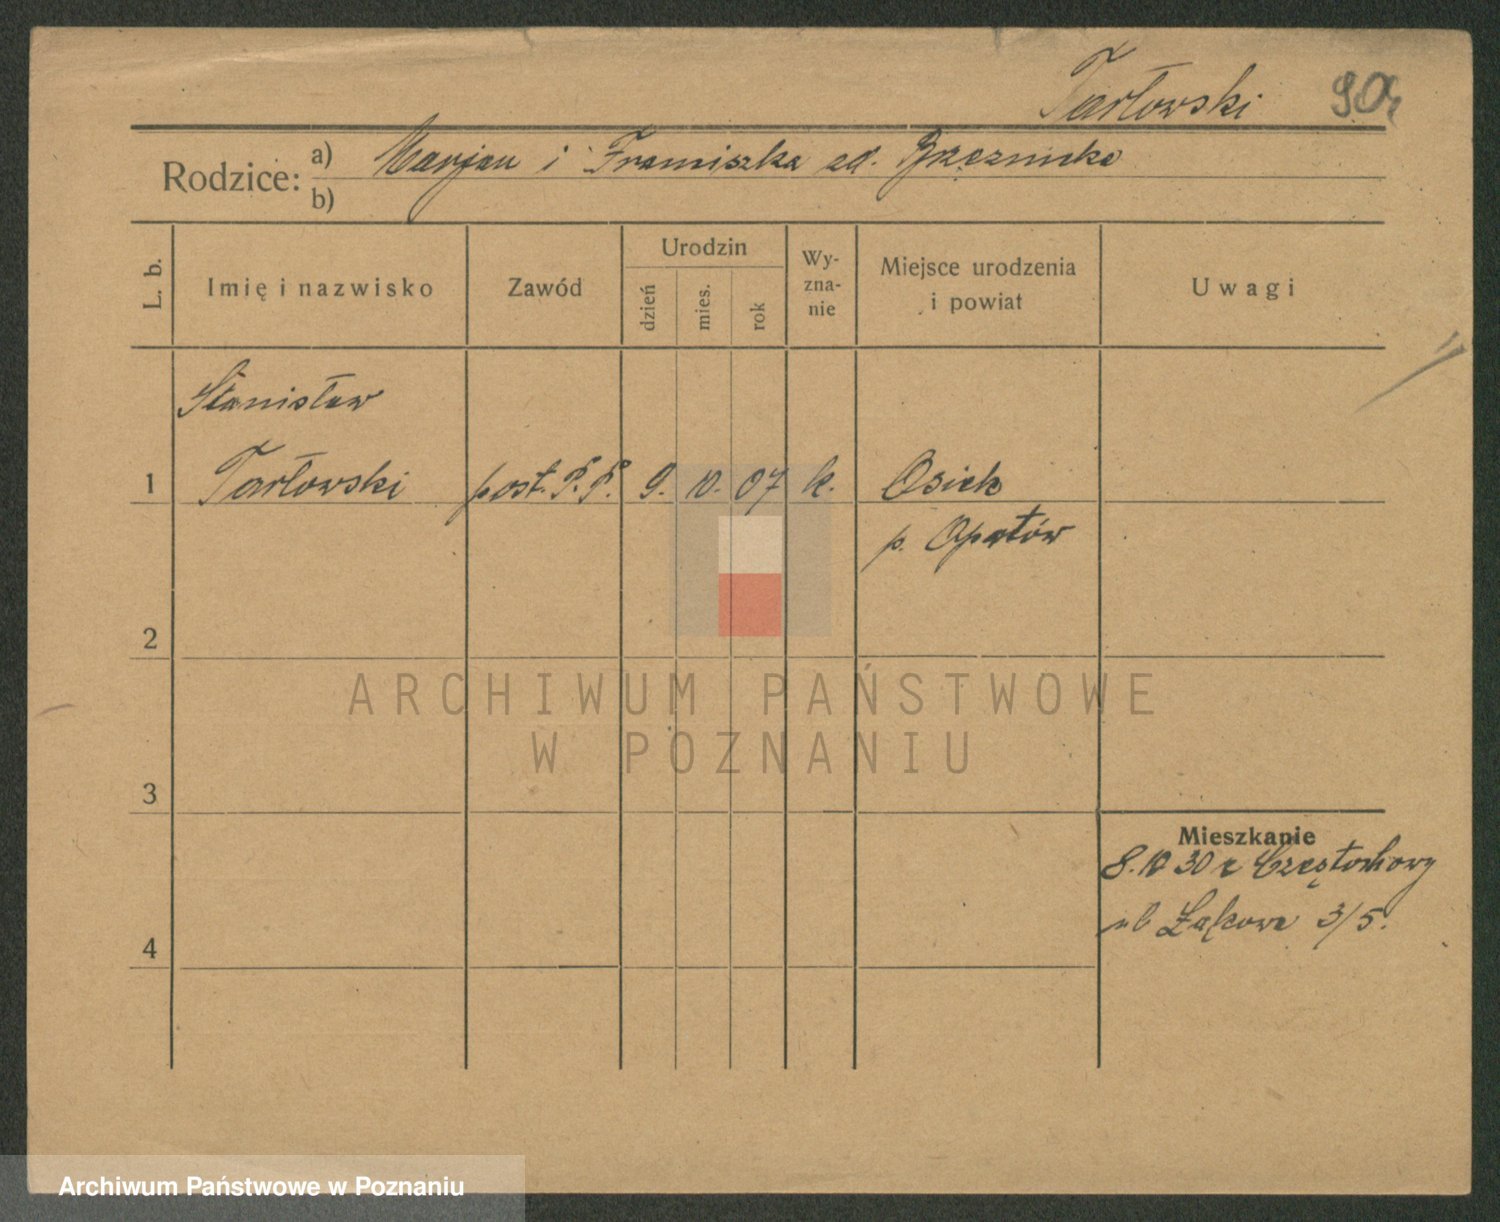 Tarłowski 90
Rodzice: a) Marjan i Franciszka zd.
b)
L. b. Imię i nazwisko Zawód Urodzin dzień mies. rok Wyznanie Miejsce urodzenia i powiat Uwagi
Stanisław
1 Tarłowski post. P. P. 9. 10. 07 k. Osiek
p. Opatów
2
ARCHIWUM PAŃSTWOWE
W POZNANIU
3
Mieszkanie
8.10 30 z Częstochowy
ul Łąkowa 3/5.
4
Archiwum Państwowe w Poznaniu